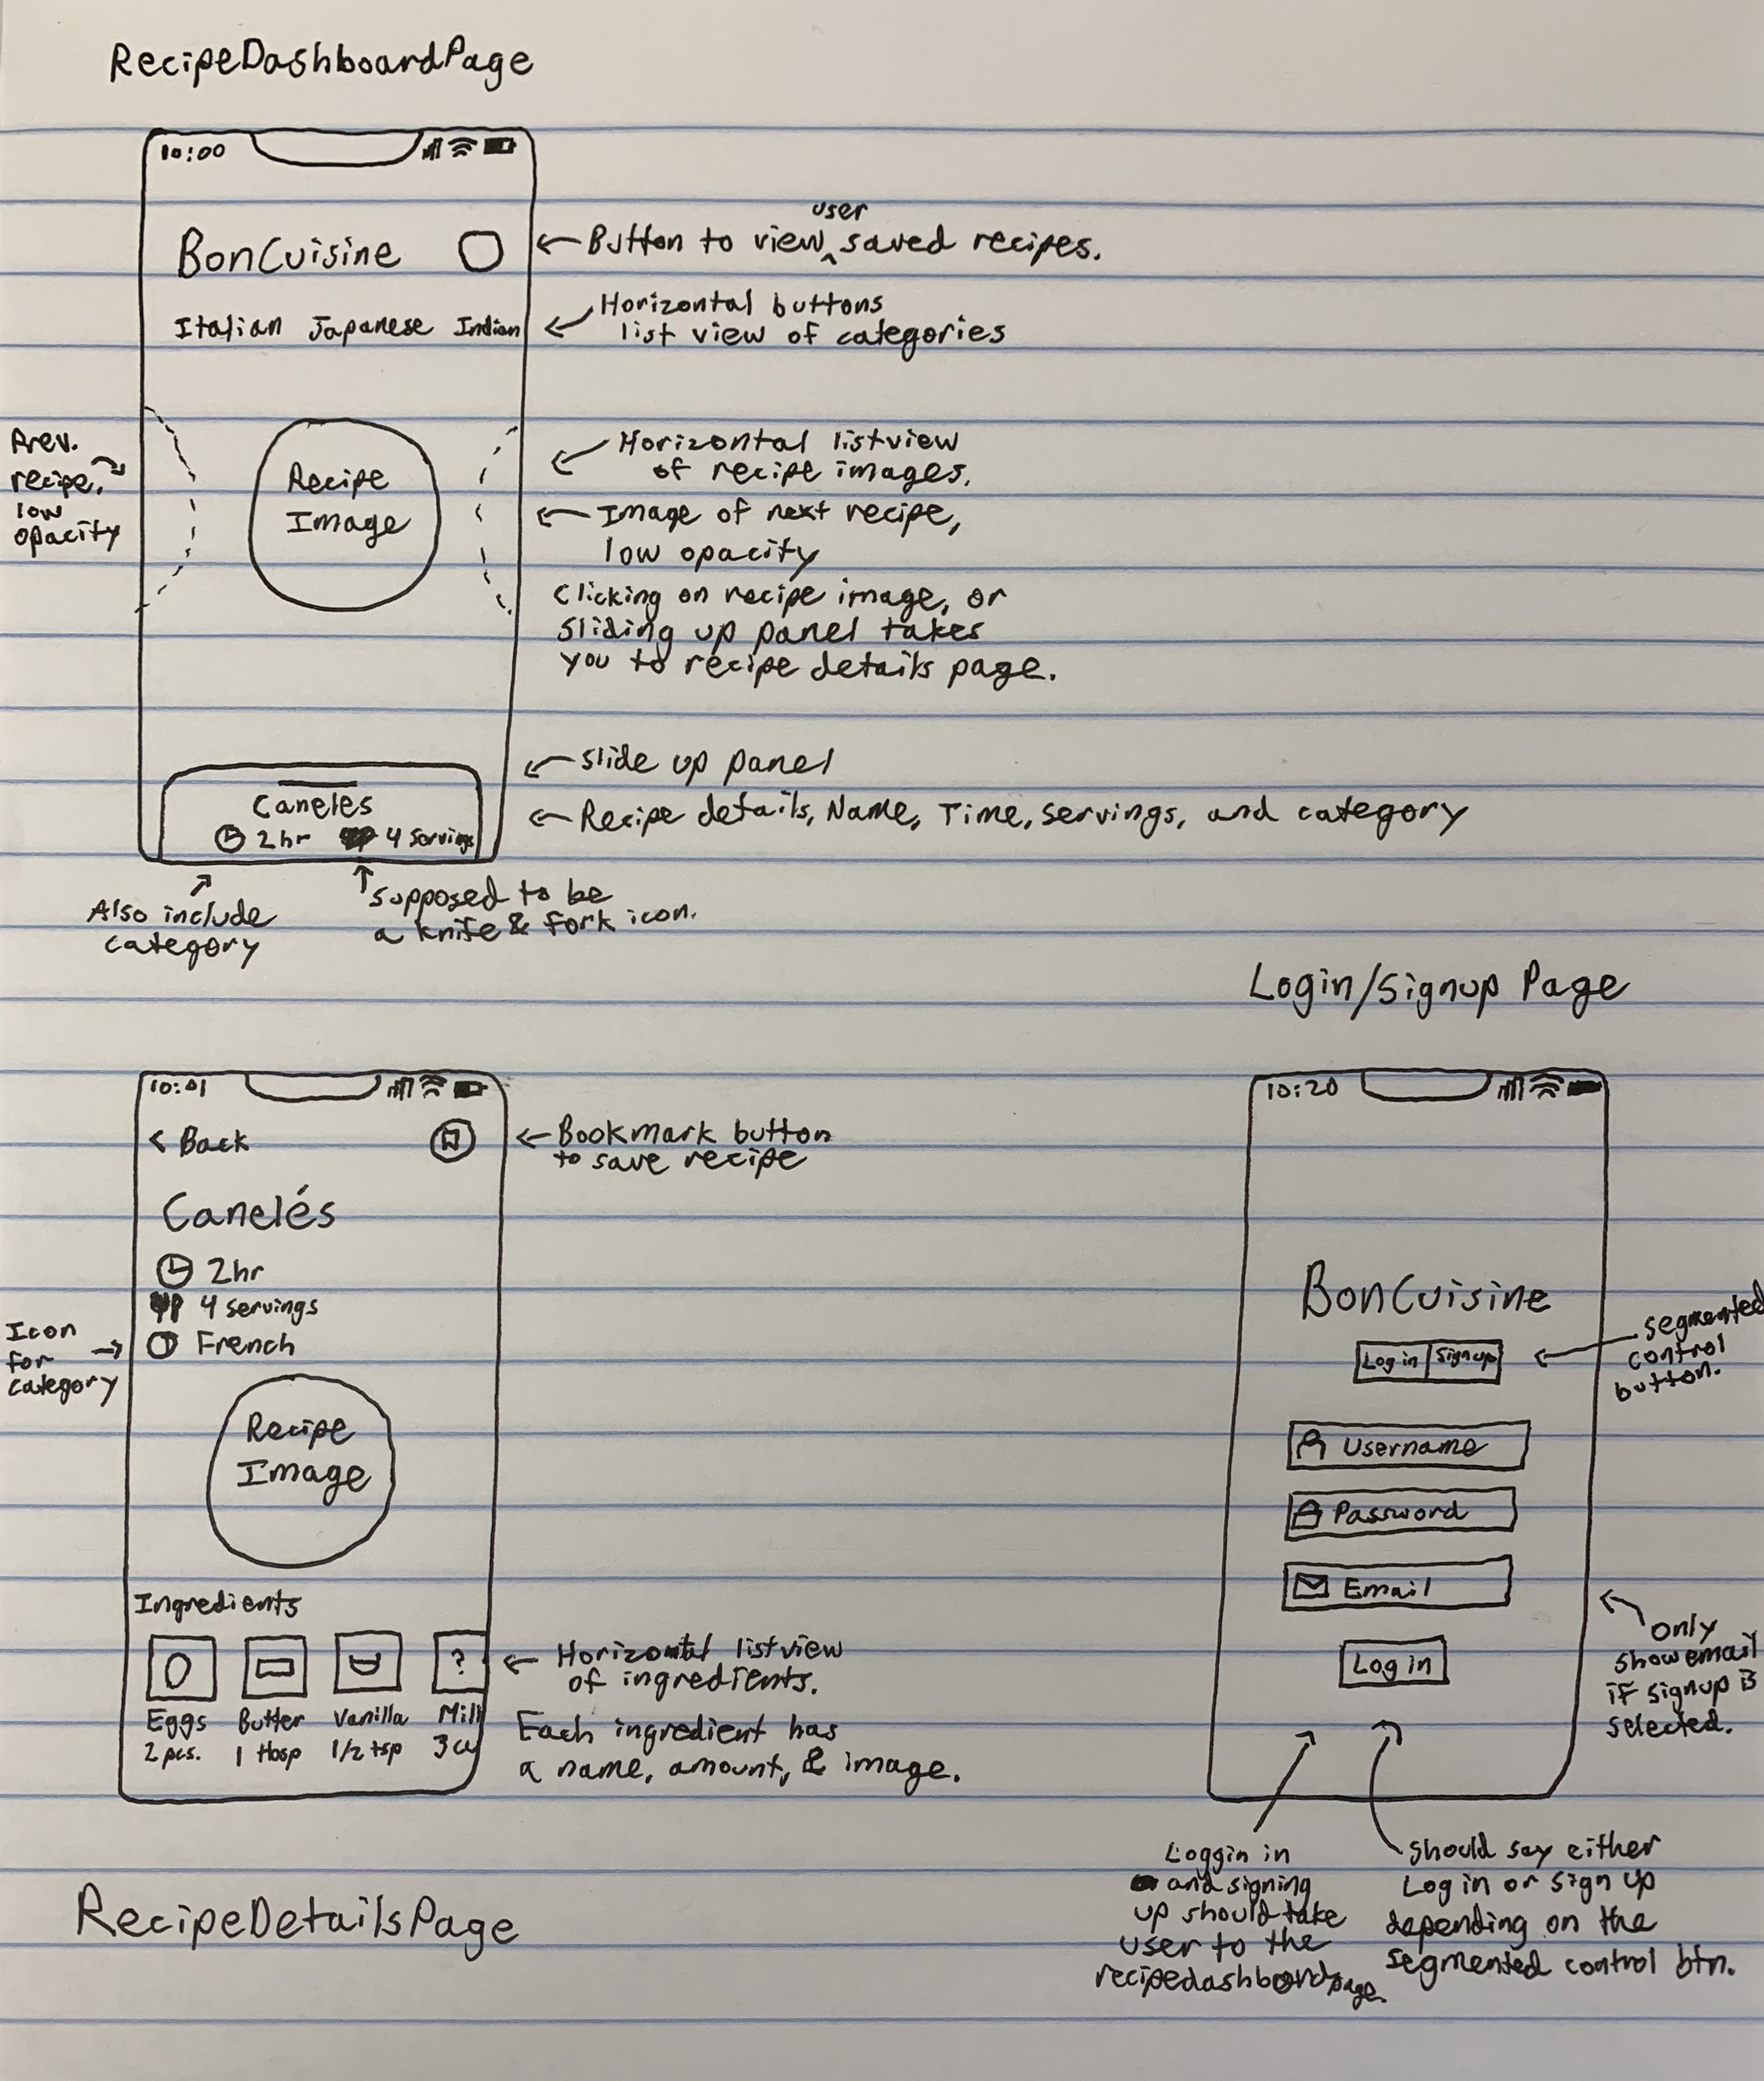 RecipeDashboardPage
10:00
BonCuisine
user
Button to view ^ saved recipes.
Italian Japanese Indian
Horizontal buttons
list view of categories
Prev.
recipe,
low
opacity
Recipe
Image
Horizontal listview
of recipe images.
Image of next recipe,
low opacity
Clicking on recipe image, or
sliding up panel takes
you to recipe details page.
Slide up panel
Caneles
2hr 4 servings
Recipe details, Name, Time, servings, and category
Also include
category
supposed to be
a knife & fork icon.
Login/Signup Page
10:01
< Back
Bookmark button
to save recipe
Canelés
2hr
4 servings
French
Icon
for
category
Recipe
Image
Ingredients
?
Eggs Butter Vanilla Mil
2 pcs. 1 tbsp 1/2 tsp 3 cu
Horizontal listview
of ingredients.
Each ingredient has
a name, amount, & image.
RecipeDetailsPage
10:20
BonCuisine
Log in Signup
segmented
control
button.
Username
Password
Email
only
show email
if signup is
selected.
Log in
Loggin in
and signing
up should take
user to the
recipedashboardpage.
Should say either
Log in or sign up
depending on the
segmented control btn.